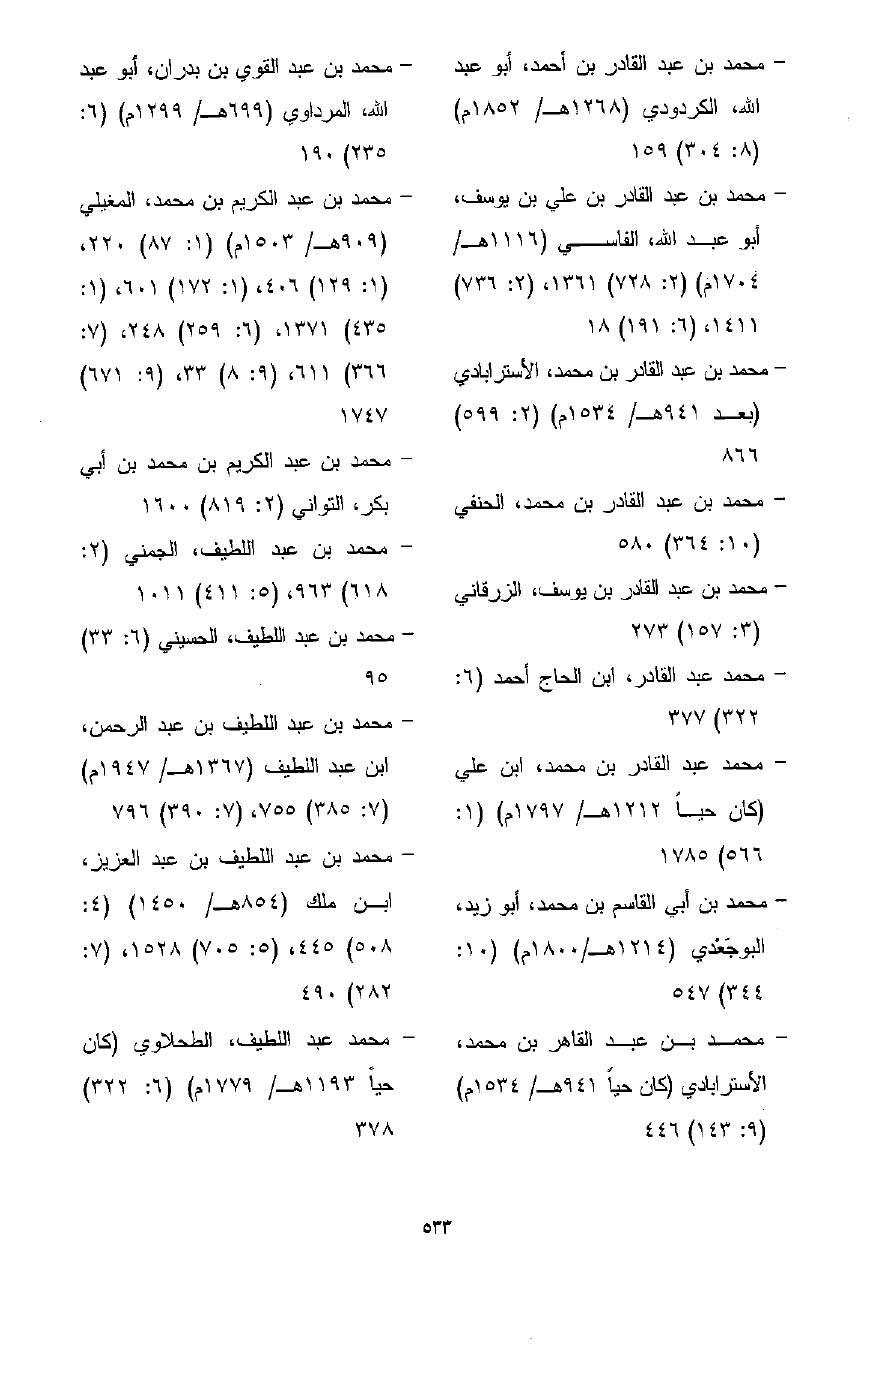 - محمد بن عبد القادر بن أحمد، أبو عبد
الله، الكردودي (١٢٦٨هـ/ ١٨٥٢م)
(٨: ٣٠٤) ١٥٩
- محمد بن عبد القادر بن علي بن يوسف،
أبو عبد الله، الفاسي (١١١٦هـ/
١٧٠٤م) (٢: ٧٢٨) ١٣٦١، (٢: ٧٣٦)
١٤١١، (٦: ١٩١) ١٨
- محمد بن عبد القادر بن محمد، الأسترابادي
(بعد ٩٤١هـ/ ١٥٣٤م) (٢: ٥٩٩)
٨٦٦
- محمد بن عبد القادر بن محمد، الحنفي
(١٠: ٣٦٤) ٥٨٠
- محمد بن عبد القادر بن يوسف، الزرقاني
(٣: ١٥٧) ٢٧٣
- محمد عبد القادر، ابن الحاج أحمد (٦:
٣٢٢) ٣٧٧
- محمد عبد القادر بن محمد، ابن علي
(كان حياً ١٢١٢هـ/ ١٧٩٧م) (١:
٥٦٦) ١٧٨٥
- محمد بن أبي القاسم بن محمد، أبو زيد،
البوجَعْدي (١٢١٤هـ/١٨٠٠م) (١٠:
٣٤٤) ٥٤٧
- محمد بن عبد القاهر بن محمد،
الأسترابادي (كان حياً ٩٤١هـ/ ١٥٣٤م)
(٩: ١٤٣) ٤٤٦
- محمد بن عبد القوي بن بدران، أبو عبد
الله، المرداوي (٦٩٩هـ/ ١٢٩٩م) (٦:
٢٣٥) ١٩٠
- محمد بن عبد الكريم بن محمد، المغيلي
(٩٠٩هـ/ ١٥٠٣م) (١: ٨٧) ٢٢٠،
(١: ١٢٩) ٤٠٦، (١: ١٧٢) ٦٠١، (١:
٤٣٥) ١٣٧١، (٦: ٢٥٩) ٢٤٨، (٧:
٣٦٦) ٦١١، (٩: ٨) ٣٣، (٩: ٦٧١)
١٧٤٧
- محمد بن عبد الكريم بن محمد بن أبي
بكر، التواني (٢: ٨١٩) ١٦٠٠
- محمد بن عبد اللطيف، الجمني (٢:
٦١٨) ٩٦٣، (٥: ٤١١) ١٠١١
- محمد بن عبد اللطيف، الحسيني (٦: ٣٣)
٩٥
- محمد بن عبد اللطيف بن عبد الرحمن،
ابن عبد اللطيف (١٣٦٧هـ/ ١٩٤٧م)
(٧: ٣٨٥) ٧٥٥، (٧: ٣٩٠) ٧٩٦
- محمد بن عبد اللطيف بن عبد العزيز،
ابن ملك (٨٥٤هـ/ ١٤٥٠) (٤:
٥٠٨) ٤٤٥، (٥: ٧٠٥) ١٥٢٨، (٧:
٢٨٢) ٤٩٠
- محمد عبد اللطيف، الطحلاوي (كان
حياً ١١٩٣هـ/ ١٧٧٩م) (٦: ٣٢٢)
٣٧٨
٥٣٣